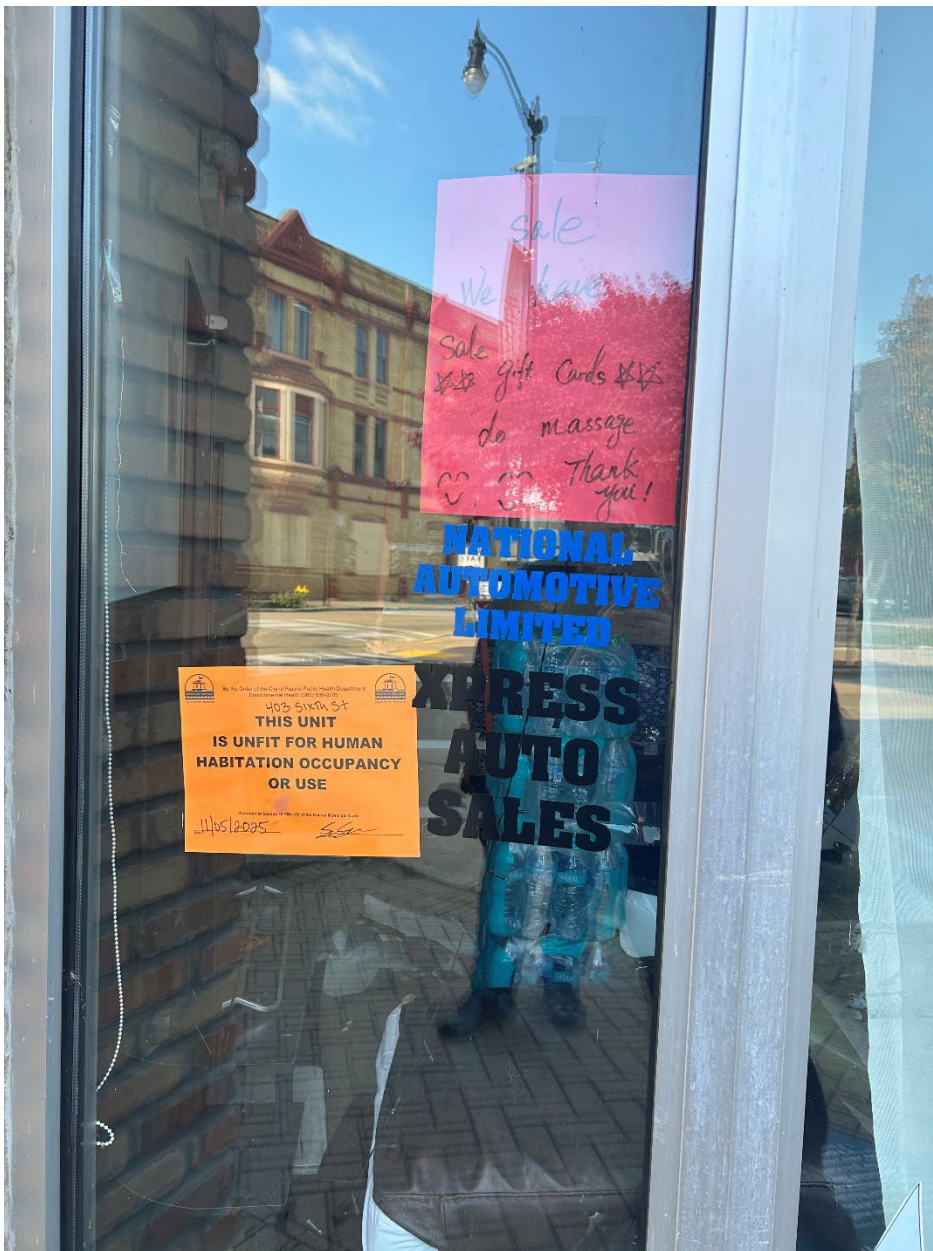 sale
We have
Sale
gift Cards
do massage
Thank
you!
NATIONAL
AUTOMOTIVE
LIMITED
XPRESS
AUTO
SALES
By the Order of the City of Racine Public Health Department
Environmental Health
403 Sixth St
THIS UNIT
IS UNFIT FOR HUMAN
HABITATION OCCUPANCY
OR USE
11/05/2025
DASANI